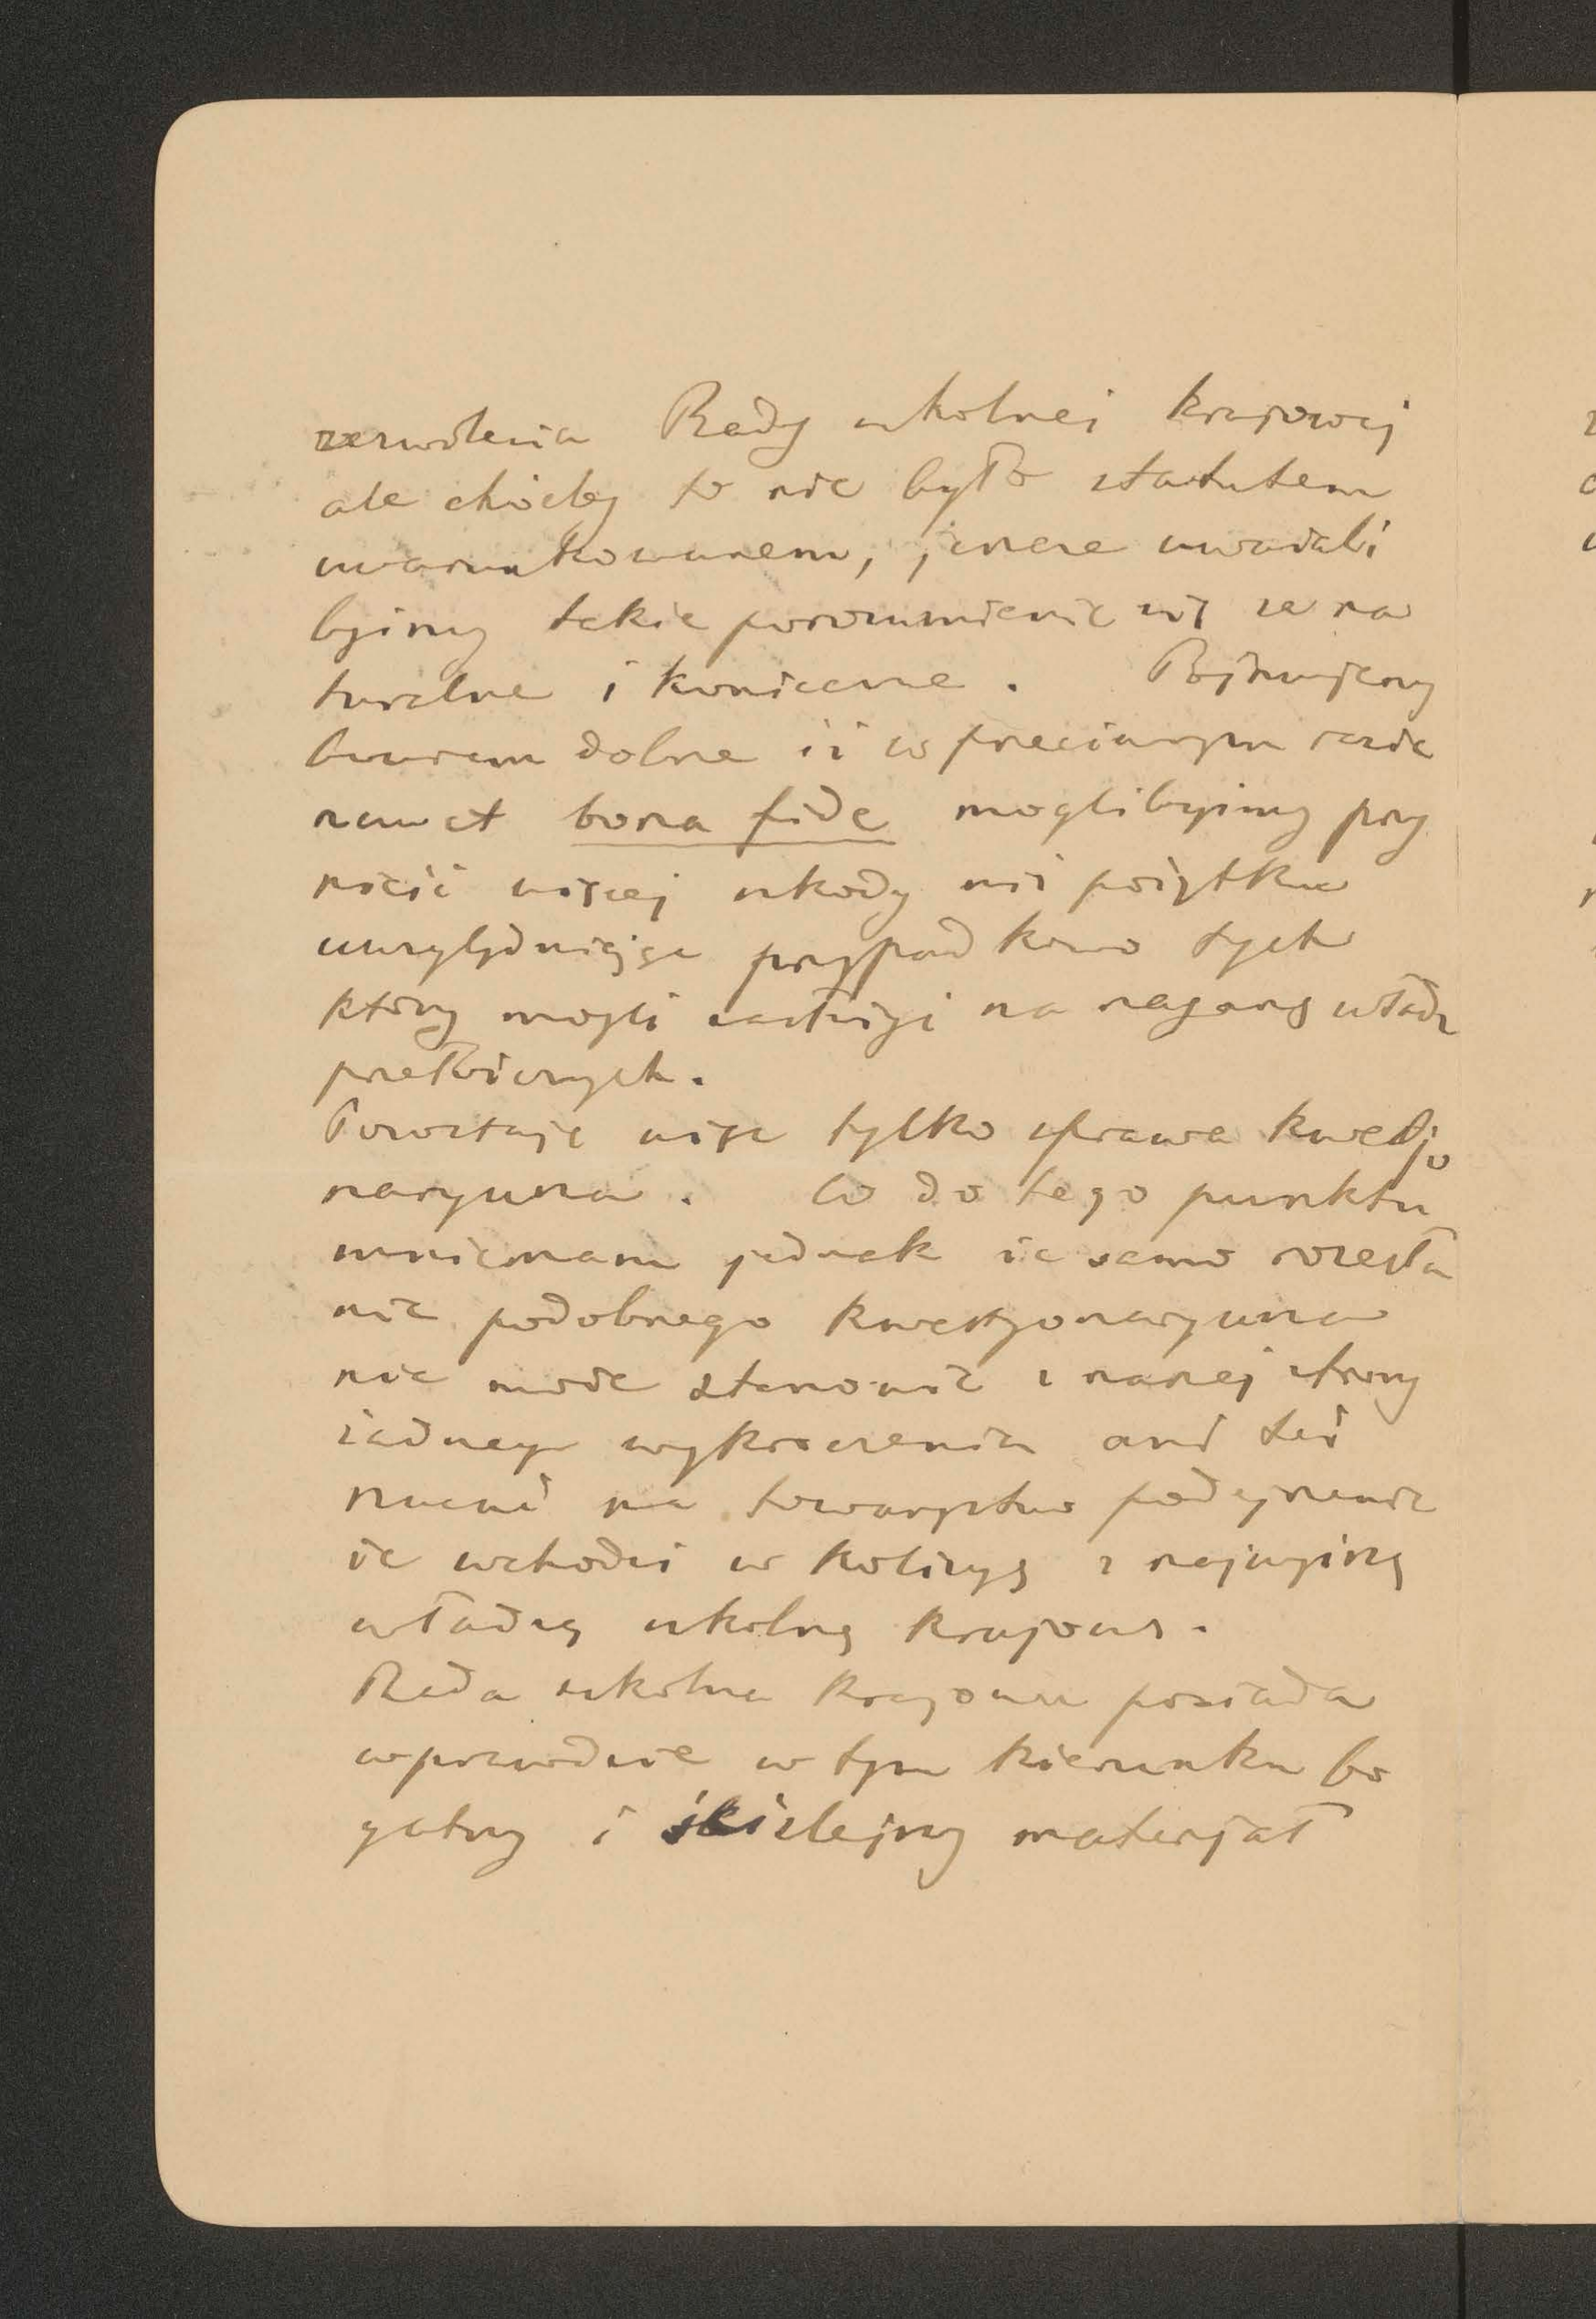 zezwolenia Rady szkolnej krajowej
ale choćby to nie było statutem
uwarunkowanem, jeszcze uważali
byśmy takie porozumienie się za na
turalne i konieczne. Pojmujemy
bowiem dobrze iż w przeciwnym razie
nawet bona fide moglibyśmy przy
nieść więcej szkody niż pożytku
uwzględniając przypadkowo tych
którzy mogli zasłużyć na naganę władz
przełożonych.
Pozostaje więc tylko sprawa kwestjo
naryusza. Co do tego punktu
mniemam jednak że samo rozesła
nie podobnego kwestyonaryusza
nie może stanowić z naszej strony
żadnego wykroczenia ani też
rzucać na towarzystwo podejrzenie
że wchodzi w kolizyę z najwyższą
władzą szkolną krajową.
Rada szkolna krajowa posiada
wprawdzie w tym kierunku bo
gatszy i ściślejszy materjał